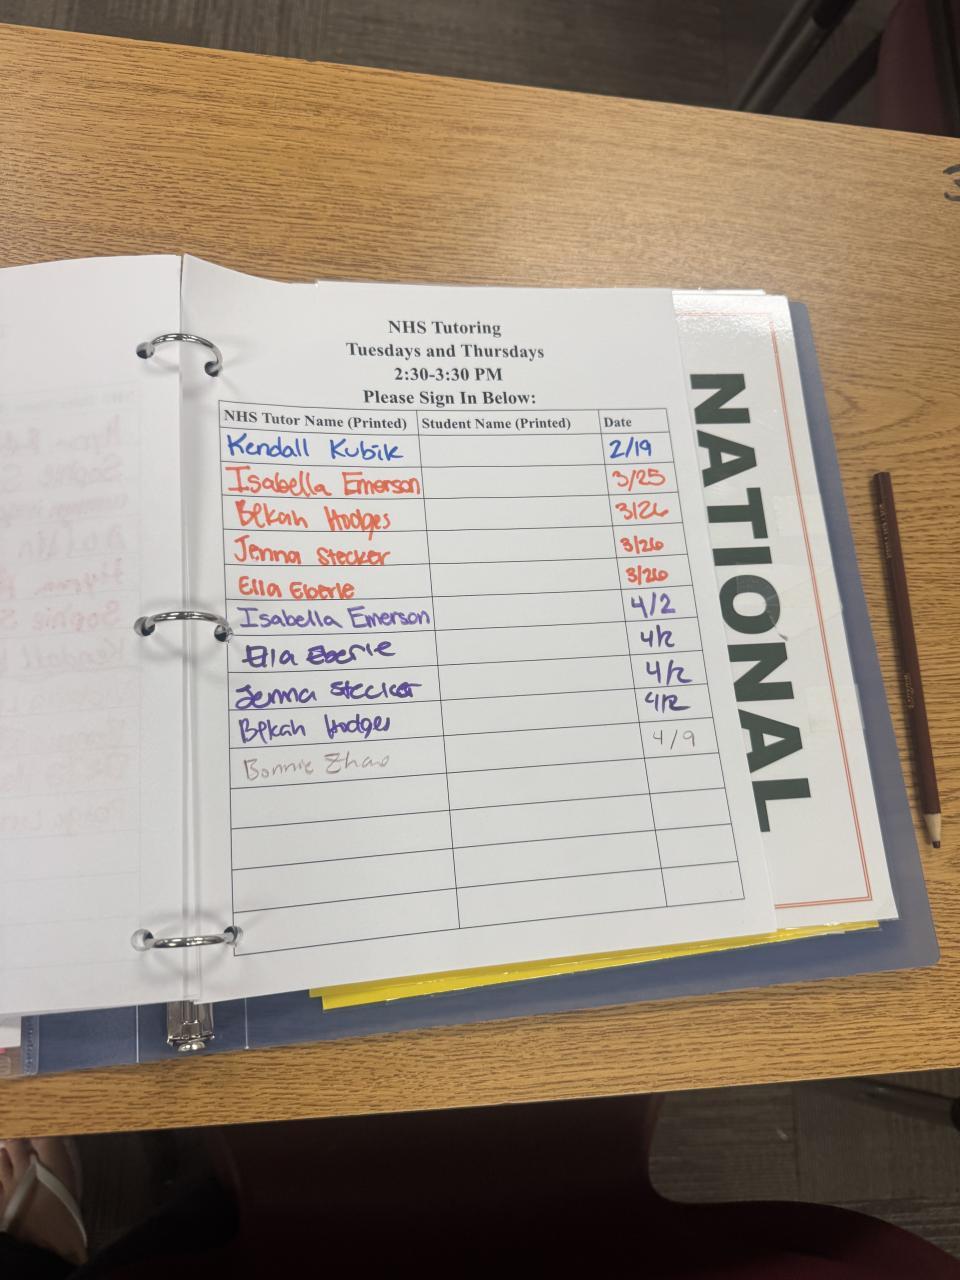 NHS Tutoring
Tuesdays and Thursdays
2:30-3:30 PM
Please Sign In Below:
NHS Tutor Name (Printed) Student Name (Printed) Date
Kendall Kubik 2/19
Isabella Emerson 3/25
Bekah Hodges 3/26
Jenna Stecker 3/26
Ella Eberle 3/26
Isabella Emerson 4/2
Ella Eberle 4/2
Jenna Stecker 4/2
Bekah Hodges 4/2
Bonnie Zhao 4/9
NATIONAL